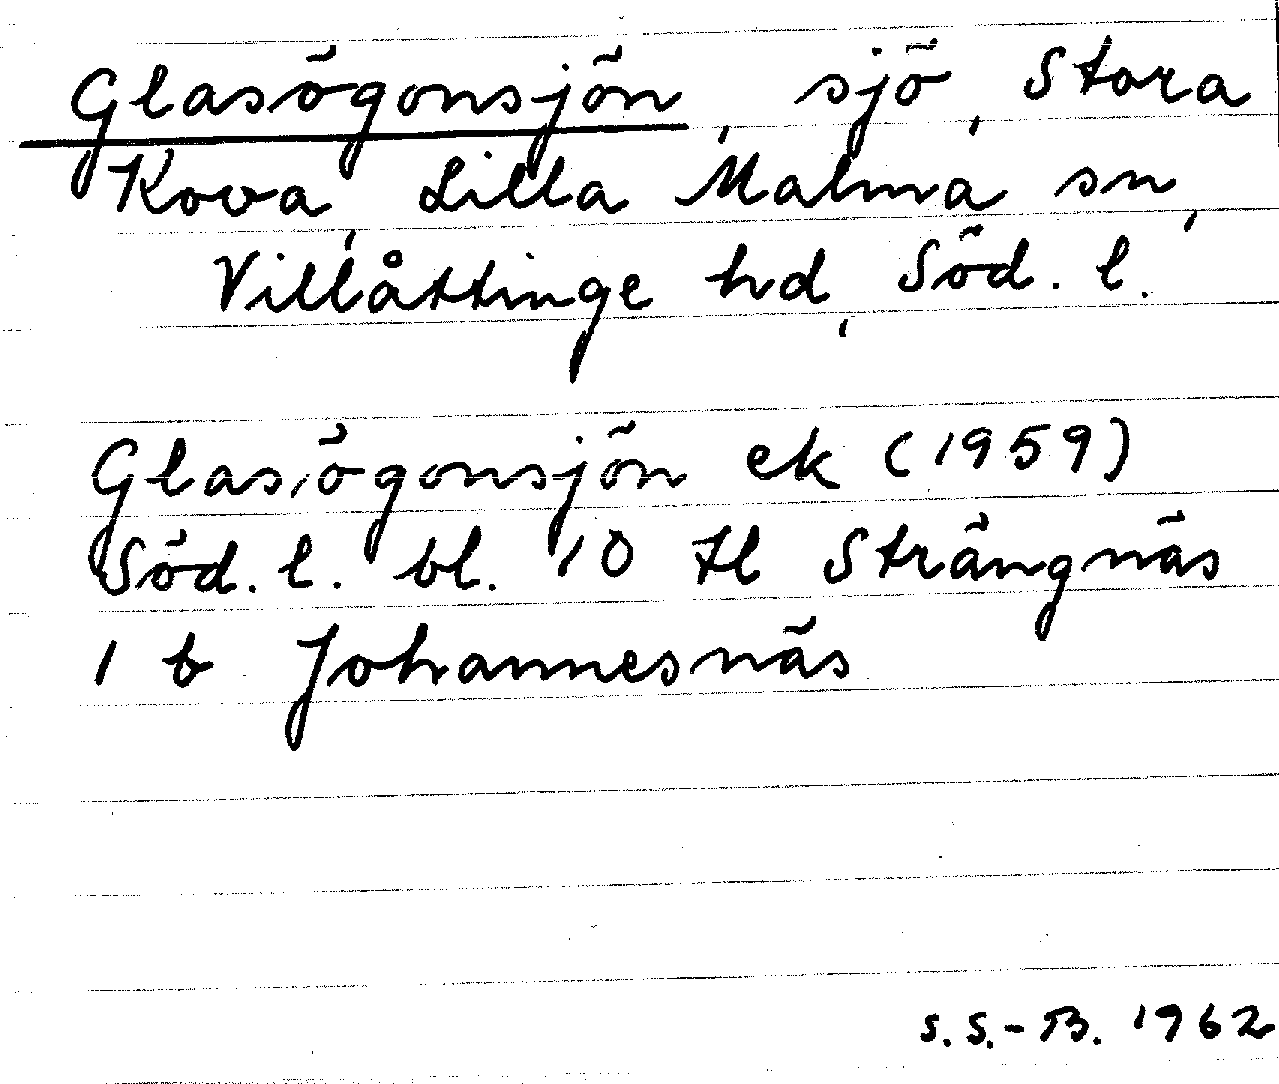 Glasögonsjön, sjö, Stora
Kova, Lilla Malma sn,
Villåttinge hd, Söd. l.
Glasögonsjön ek (1959)
Söd. l. bl. 10 tl Strängnäs
1 b Johannesnäs
S.S.-B. 1962